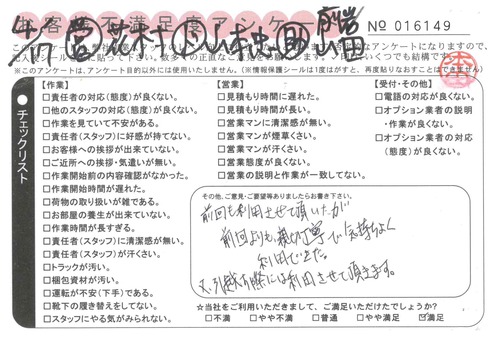 お客様不満足度アンケート
№ 016149
4/17
※このアンケートは、アンケート目的以外には使用いたしません。(※情報保護シールは1度はがすと、再度貼りなおすことはできません)
チェックリスト
【作業】
□責任者の対応(態度)が良くない。
□他のスタッフの対応(態度)が良くない。
□作業を見ていて不安がある。
□責任者(スタッフ)に好感が持てない。
□お客様への挨拶が出来ていない。
□ご近所への挨拶・気遣いが無い。
□作業開始前の内容確認がなかった。
□作業開始時間が遅れた。
□荷物の取り扱いが雑である。
□お部屋の養生が出来ていない。
□作業時間が長すぎる。
□責任者(スタッフ)に清潔感が無い。
□責任者(スタッフ)が汗くさい。
□トラックが汚い。
□梱包資材が汚い。
□運転が不安(下手)である。
□靴下の履き替えをしてない。
□スタッフにやる気がみられない。
【営業】
□見積もり時間に遅れた。
□見積もり時間が長い。
□営業マンに清潔感が無い。
□営業マンが煙草くさい。
□営業マンが汗くさい。
□営業態度が良くない。
□営業の説明と作業が一致してない。
【受付・その他】
□電話の対応が良くない。
□オプション業者の説明・作業が良くない。
□オプション業者の対応(態度)が良くない。
その他、ご意見・ご要望等ありましたらお書き下さい。
前回も利用させて頂いたが
前回よりも親切丁寧で気持ちよく
利用できた。
又、引越の際には利用させて頂きます。
☆当社をご利用いただきまして、ご満足いただけたでしょうか?
□不満 □やや不満 □普通 □やや満足 ☑満足